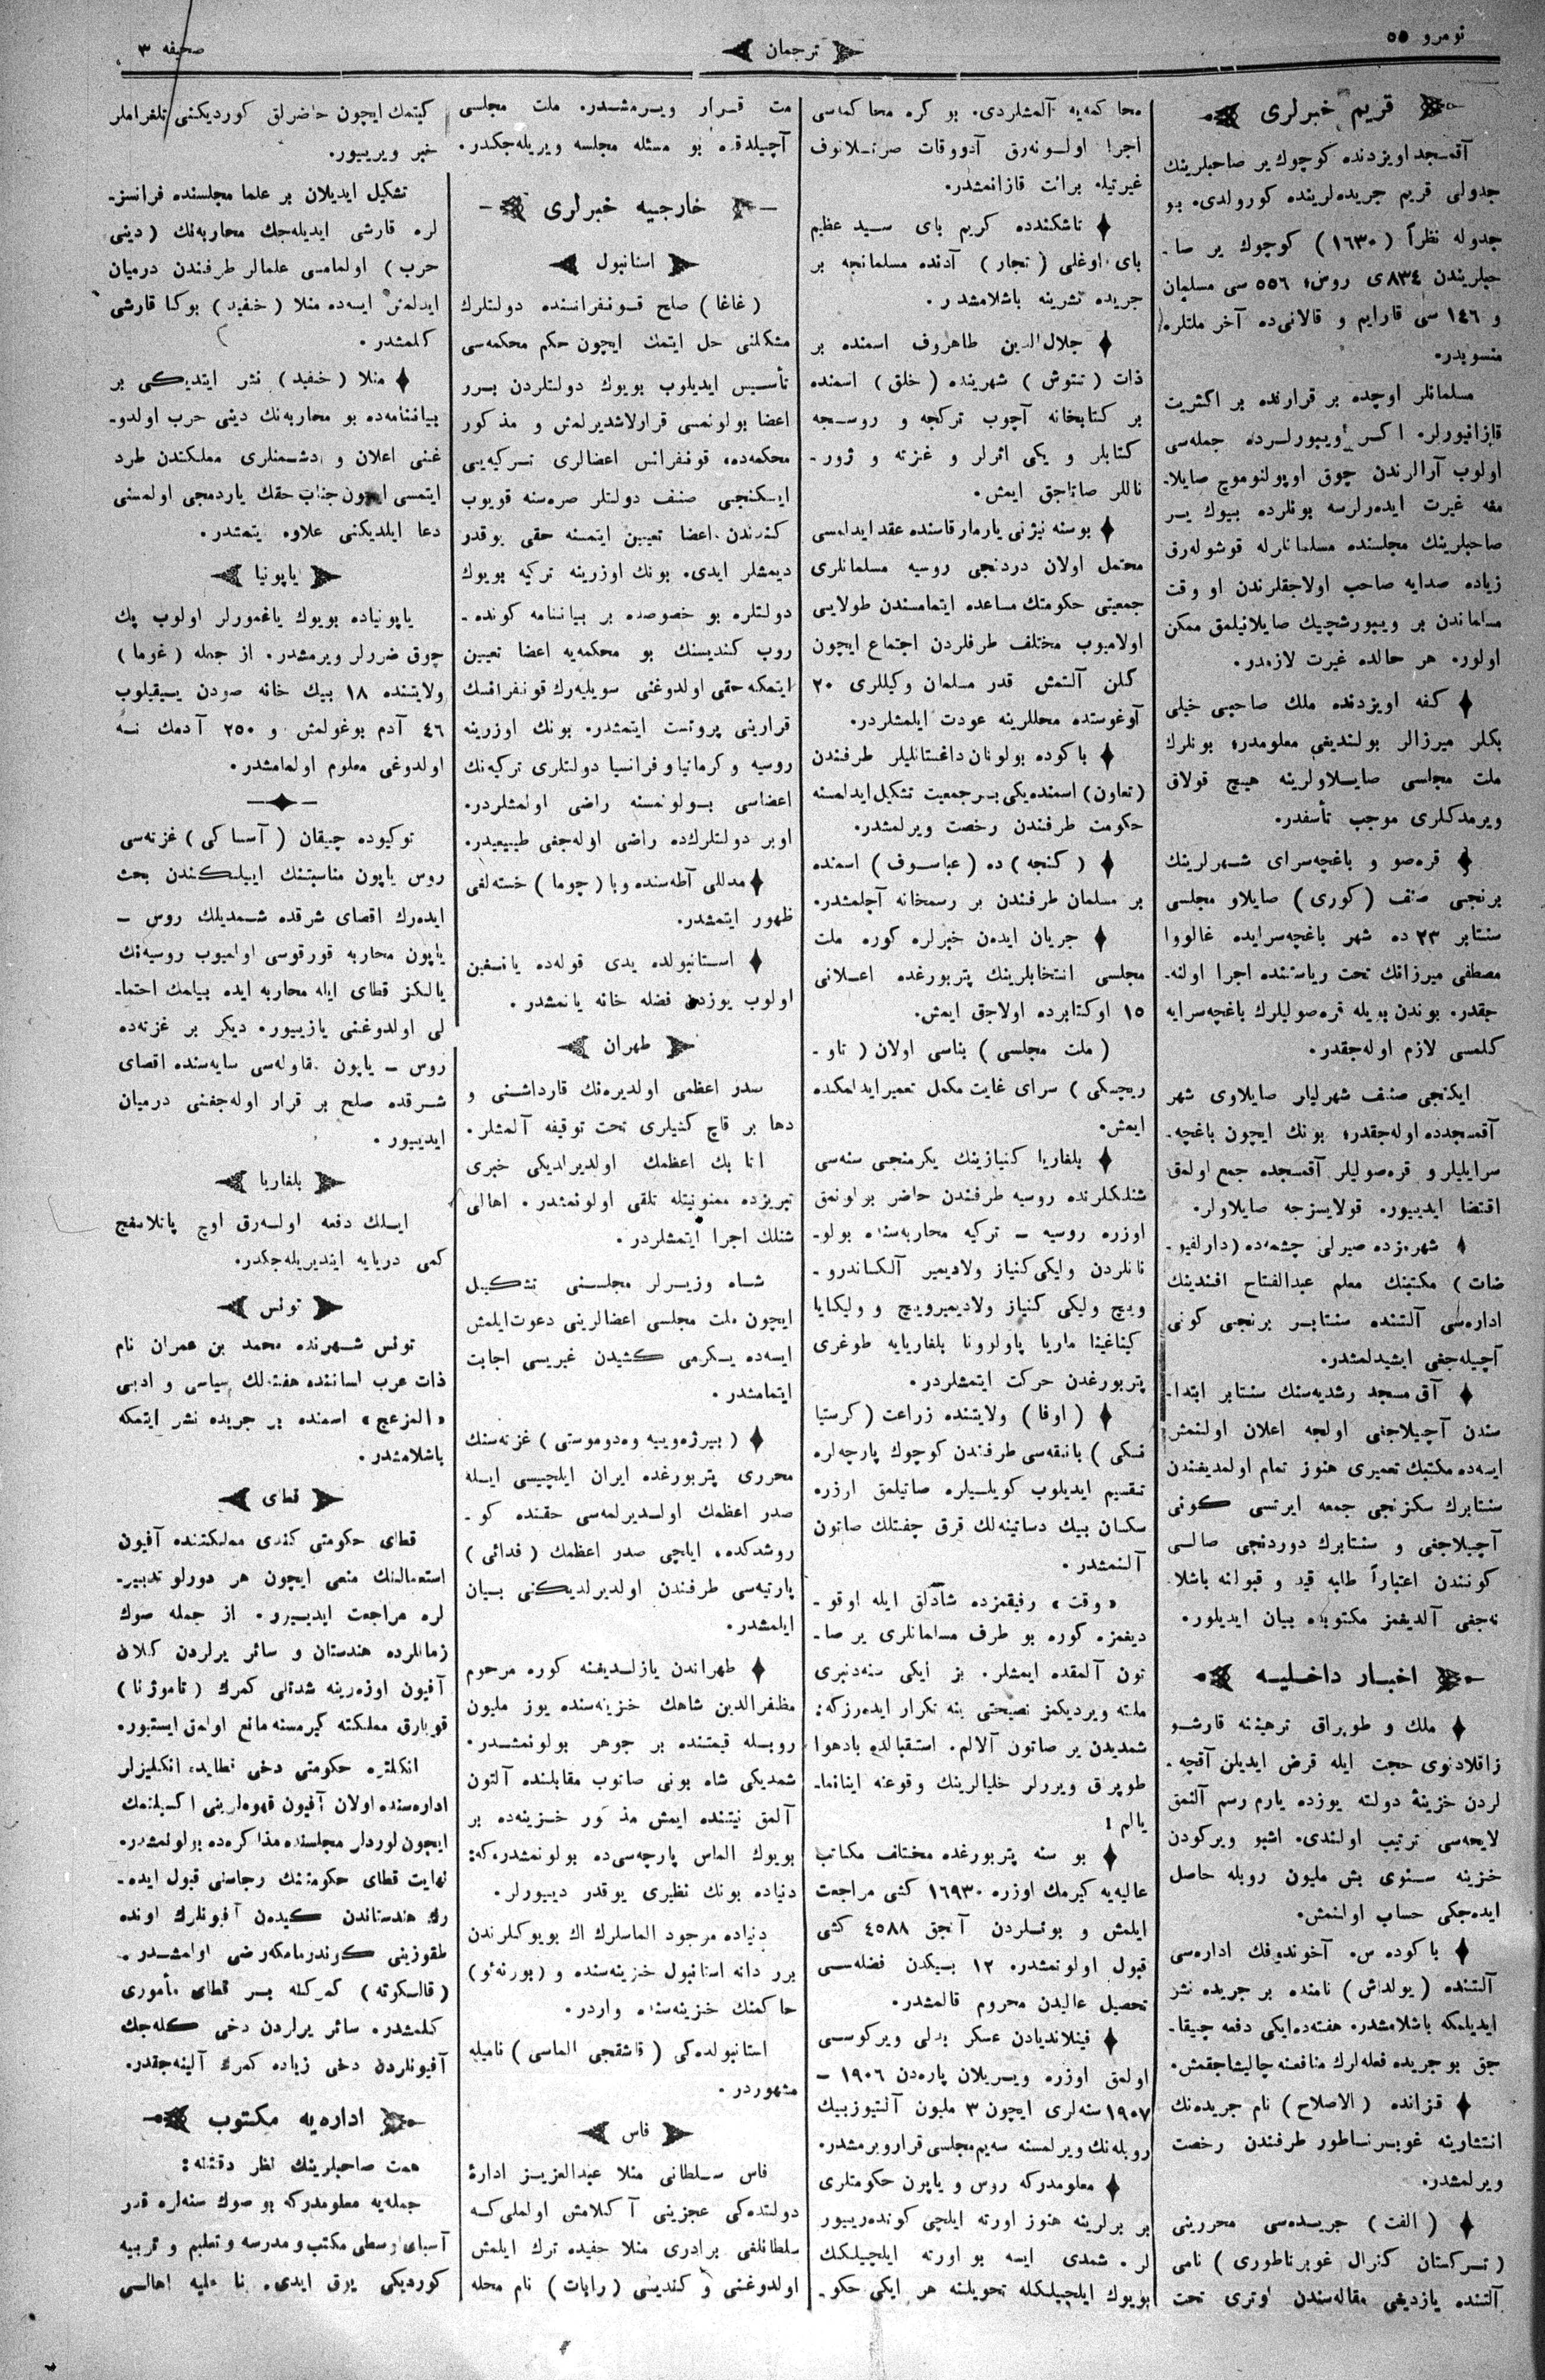 نومرو ٥٥
ترجمان
صحيفه ٣
قريم خبرلری
آقمسجد اويزدنده كوچوك ير صاحبلرينك
جدولی قريم جريده‌لرينده كورولدی. بو
جدوله نظراً (١٦٣٠) كوچوك ير صا-
حبلريندن ٨٣٤ی روس، ٥٥٦ سی مسلمان
و ١٤٦ سی قارايم و قالانی‌ده آخر ملتلره
منسوبدر.
مسلمانلر اوچده بر قرارنده بر اكثريت
قازانيورلر. اكر اويبورلرده جمله‌سی
اولوب آرالرندن چوق اوپولنوموچ صايلا-
مغه غيرت ايده‌رلرسه بونلرده بيوك ير
صاحبلرينك مجلسنده مسلمانلرله قوشوله‌رق
زياده صدايه صاحب اولاجقلرندن او وقت
مسلماندن بر ويبورشچيك صايلانيلمق ممكن
اولور. هر حالده غيرت لازمدر.
كفه اويزدنده ملك صاحبی خيلی
بكلر ميرزالر بولنديغی معلومدر؛ بونلرك
ملت مجلسی صايلاولرينه هيچ قولاق
ويرمدكلری موجب تأسفدر.
قره‌صو و باغچه‌سرای شهرلرينك
برنجی صنف (كوری) صايلاو مجلسی
سنتابر ٢٣ ده شهر باغچه‌سرايده غالووا
مصطفی ميرزانك تحت رياستنده اجرا اولنه-
جقدر. بوندن بويله قره‌صوليلرك باغچه‌سرايه
كلمسی لازم اوله‌جقدر.
ايكنجی صنف شهرليلر صايلاوی شهر
آقمسجدده اوله‌جقدر؛ بونك ايچون باغچه-
سرايليلر و قره‌صوليلر آقمسجده جمع اولمق
اقتضا ايدييور. قولايسزجه صايلاولر.
شهرمزده صيرلی چشمه‌ده (دارلفيو-
ضات) مكتبنك معلم عبدالفتاح افندينك
اداره‌سی آلتنده سنتابر برنجی كونی
آچيله‌جغی ايشيدلمشدر.
آق مسجد رشديه‌سنك سنتابر ابتدا-
سندن آچيلاجغی اولجه اعلان اولنمش
ايسه‌ده مكتبك تعميری هنوز تمام اولمديغندن
سنتابرك سكزنجی جمعه ايرتسی كونی
آچيلاجغی و سنتابرك دوردنجی صالی
كونندن اعتباراً طلبه قيد و قبولنه باشلا-
نه‌جغی آلديغمز مكتوبده بيان ايديلور.
اخبار داخليه
ملك و طوپراق ترهيننه قارشو
زاقلادنوی حجت ايله قرض ايديلن آقچه-
لردن خزينهٔ دولته يوزده يارم رسم آلنمق
لايحه‌سی ترتيب اولندی. اشبو ويركودن
خزينه سنوی بش مليون روبله حاصل
ايده‌جكی حساب اولنمش.
باكوده س. آخوندوفك اداره‌سی
آلتنده (يولداش) نامنده بر جريده نشر
ايديلمكه باشلامشدر. هفته‌ده‌ايكی دفعه چيقا-
جق بو جريده فعله‌لرك منافعنه چاليشاجقمش.
قزانده (الاصلاح) نام جريده‌نك
انتشارينه غوبرناطور طرفندن رخصت
ويرلمشدر.
(الفت) جريده‌سی محررينی
(تركستان كنرال غوبرناطوری) نامی
آلتنده يازديغی مقاله‌سندن اوتری تحت
محاكمه‌يه آلمشلردی. بو كره محاكمه‌سی
اجرا اولونه‌رق آدووقات صرتلانوف
غيرتيله برائت قازانمشدر.
تاشكندده كريم بای سيد عظيم
بای اوغلی (تجار) آدنده مسلمانچه بر
جريده نشرينه باشلامشدر.
جلال‌الدين طاهروف اسمنده بر
ذات (تتوش) شهرينده (خلق) اسمنده
بر كتابخانه آچوب تركجه و روسجه
كتابلر و يكی اثرلر و غزته و ژور-
ناللر صاتاجق ايمش.
بوسنه نيژنی يارمارقاسنده عقد ايدلمسی
محتمل اولان دردنجی روسيه مسلمانلری
جمعيتی حكومتك مساعده ايتمامسندن طولايی
اولاميوب مختلف طرفلردن اجتماع ايچون
كلن آلتمش قدر مسلمان وكيللری ٢٠
آوغوستده محللرينه عودت ايلمشلردر.
باكوده بولونان داغستانليلر طرفندن
(تعاون) اسمنده‌يكی برجمعيت تشكيل ايدلمسنه
حكومت طرفندن رخصت ويرلمشدر.
(كنجه) ده (عباسوف) اسمنده
بر مسلمان طرفندن بر رسمخانه آچلمشدر.
جريان ايدن خبرلره كوره ملت
مجلسی انتخابلرينك پتربورغده اعلانی
١٥ اوكتابرده اولاجق ايمش.
(ملت مجلسی) بناسی اولان (تاو-
ريچسكی) سرای غايت مكمل تعمير ايدلمكده
ايمش.
بلغاريا كنيازينك يكرمنجی سنه‌سی
شنلكلرنده روسيه طرفندن حاضر بولونمق
اوزره روسيه - تركيه محاربه‌سنده بولو-
نانلردن وليكی كنياز ولاديمير آلكساندرو-
ويچ وليكی كنياز ولاديميرويچ و وليكايا
كيناغينا ماريا پاولوونا بلغاريايه طوغری
پتربورغدن حركت ايتمشلردر.
(اوفا) ولايتنده زراعت (كرستيا
نسكی) بانقه‌سی طرفندن كوچوك پارچه‌لره
تقسيم ايديلوب كويليلره صاتيلمق اوزره
سكسان بيك دساتينه‌لك قرق چفتلك صاتون
آلنمشدر.
«وقت» رفيقمزده شادلق ايله اوقو-
ديغمزه كوره بو طرف مسلمانلری ير صا-
تون آلمقده ايمشلر. بز ايكی سنه‌دنبری
ملته ويرديكمز نصيحتی ينه تكرار ايده‌رزكه:
شمديدن ير صاتون آلالم. استقبالده بادهوا
طوپراق ويررلر خليالرينك وقوعنه اينانما-
يالم!
بو سنه پتربورغده مختلف مكاتب
عاليه‌يه كيرمك اوزره ١٦٩٣٠ كشی مراجعت
ايلمش و بونلردن آنجق ٤٥٨٨ كشی
قبول اولونمشدر. ١٢ بيكدن فضله‌سی
تحصيل عاليدن محروم قالمشدر.
فينلانديادن عسكر بدلی ويركوسی
اولمق اوزره ويريلان پاره‌دن ١٩٠٦ -
١٩٠٧ سنه‌لری ايچون ٣ مليون آلتيوزبيك
روبله‌نك ويرلمسنه سه‌يم مجلسی قرار ويرمشدر.
معلومدركه روس و ياپون حكومتلری
بر برلرينه هنوز اورته ايلچی كونده‌رييور
لر. شمدی ايسه بو اورته ايلچيلكك
بويوك ايلچيلكله تحويلنه هر ايكی حكو-
مت قرار ويرمشدر. ملت مجلسی
آچيلدقده بو مسئله مجلسه ويريله‌جكدر.
خارجيه خبرلری
استانبول
(غاغا) صلح قونفرانسنده دولتلرك
مشكلنی حل ايتمك ايچون حكم محكمه‌سی
تأسيس ايديلوب بويوك دولتلردن برر
اعضا بولونمسی قرارلاشديرلمش و مذكور
محكمه‌ده، قونفرانس اعضالری تركيه‌يی
ايكنجی صنف دولتلر صره‌سنه قويوب
كندندن اعضا تعيين ايتمسنه حقی يوقدر
ديمشلر ايدی. بونك اوزرينه تركيه بويوك
دولتلره بو خصوصده بر بياننامه كونده-
روب كنديسنك بو محكمه‌يه اعضا تعيين
ايتمكه حقی اولدوغنی سويليه‌رك قونفرانسك
قرارينی پروتست ايتمشدر. بونك اوزرينه
روسيه و كرمانيا و فرانسيا دولتلری تركيه‌نك
اعضاسی بولونمسنه راضی اولمشلردر.
اوبر دولتلرك‌ده راضی اوله‌جغی طبيعيدر.
مدللی آطه‌سنده وبا (چوما) خسته‌لغی
ظهور ايتمشدر.
استانبولده يدی قوله‌ده يانغين
اولوب يوزدن فضله خانه يانمشدر.
طهران
سدر اعظمی اولديره‌نك قارداشنی و
دها بر قاچ كشيلری تحت توقيفه آلمشلر.
اتا بك اعظمك اولديرلديكی خبری
تبريزده ممنونيتله تلقی اولونمشدر. اهالی
شنلك اجرا ايتمشلردر.
شاه وزيرلر مجلسنی تشكيل
ايچون ملت مجلسی اعضالرينی دعوت ايلمش
ايسه‌ده يكرمی كشيدن غيريسی اجابت
ايتمامشدر.
(بيرژه‌وييه وه‌دوموستی) غزته‌سنك
محرری پتربورغده ايران ايلچيسی ايله
صدر اعظمك اولديرلمه‌سی حقنده كو-
روشدكده، ايلچی صدر اعظمك (فدائی)
پارتيه‌سی طرفندن اولديرلديكنی بيان
ايلمشدر.
طهراندن يازلديغنه كوره مرحوم
مظفرالدين شاهك خزينه‌سنده يوز مليون
روبله قيمتنده بر جوهر بولونمشدر.
شمديكی شاه بونی صاتوب مقابلنده آلتون
آلمق نيتنده ايمش مذكور خزينه‌ده بر
بويوك الماس پارچه‌سی‌ده بولونمشدركه:
دنياده بونك نظيری يوقدر دييورلر.
دنياده موجود الماسلرك اك بويوكلرندن
برر دانه استانبول خزينه‌سنده و (بورنه‌ئو)
حاكمنك خزينه‌سنده واردر.
استانبولده‌كی (قاشقجی الماسی) ناميله
مشهوردر.
فاس
فاس سلطانی منلا عبدالعزيز ادارهٔ
دولتده‌كی عجزينی آكلامش اولملی كه
سلطانلغی برادری منلا حفيده ترك ايلمش
اولدوغنی و كنديسی (رابات) نام محله
كيتمك ايچون حاضرلق كورديكنی تلغراملر
خبر ويرييور.
تشكيل ايديلان بر علما مجلسنده فرانسز-
لره قارشی ايديله‌جك محاربه‌نك (دينی
حرب) اولمامسی علمالر طرفندن درميان
ايدلمش ايسه‌ده منلا (حفيد) بوكا قارشی
كلمشدر.
منلا (حفيد) نشر ايتديكی بر
بياننامه‌ده بو محاربه‌نك دينی حرب اولدو-
غنی اعلان و دشمنلری مملكتدن طرد
ايتمسی ايچون جناب حقك ياردمجی اولمسنی
دعا ايلديكنی علاوه ايتمشدر.
ياپونيا
ياپونياده بويوك ياغمورلر اولوب پك
چوق ضررلر ويرمشدر. از جمله (غوما)
ولايتنده ١٨ بيك خانه صودن ييقيلوب
٤٦ آدم بوغولمش و ٢٥٠ آدمك نسه
اولدوغی معلوم اولمامشدر.
توكيوده چيقان (آساكی) غزته‌سی
روس ياپون مناسبتنك اييلكندن بحث
ايده‌رك اقصای شرقده شمديلك روس -
ياپون محاربه قورقوسی اولميوب روسيه‌نك
يالكز قطای ايله محاربه ايده بيلمك احتما-
لی اولدوغنی يازييور. ديكر بر غزته‌ده
روس - ياپون مقاوله‌سی سايه‌سنده اقصای
شرقده صلح بر قرار اوله‌جغنی درميان
ايدييور.
بلغاريا
ايلك دفعه اوله‌رق اوچ پانلامغج
كمی دريايه اينديريله‌جكدر.
تونس
تونس شهرنده محمد بن عمران نام
ذات عرب لساننده هفته‌لك سياسی و ادبی
«المزعج» اسمنده بر جريده نشر ايتمكه
باشلامشدر.
قطای
قطای حكومتی كندی مملكتنده آفيون
استعمالنك منعی ايچون هر دورلو تدبير-
لره مراجعت ايدييور. از جمله صوك
زمانلرده هندستان و سائر يرلردن كلان
آفيون اوزه‌رينه شدتلی كمرك (تاموژنا)
قويارق مملكته كيرمسنه مانع اولمق ايستيور.
انكلتره حكومتی دخی قطايده انكليزلر
اداره‌سنده اولان آفيون قهوه‌لرينی اكسيلتمك
ايچون لوردلر مجلسنده مذاكره‌ده بولونمشدر.
نهايت قطای حكومتنك رجاسنی قبول ايده-
رك هندستاندن كيدن آفيونلرك اونده
طقوزينی كوندرمامكه رضی اولمشدر.
(قالكوته) كمركنه بر قطای مأموری
كلمشدر. سائر يرلردن دخی كله‌جك
آفيونلردن دخی زياده كمرك آلينه‌جقدر.
اداره‌يه مكتوب
همت صاحبلرينك نظر دقتنه:
جمله‌يه معلومدركه بو صوك سنه‌لره قدر
آسيای وسطی مكتب و مدرسه و تعليم و تربيه
كورديكی يوق ايدی. اهالسی